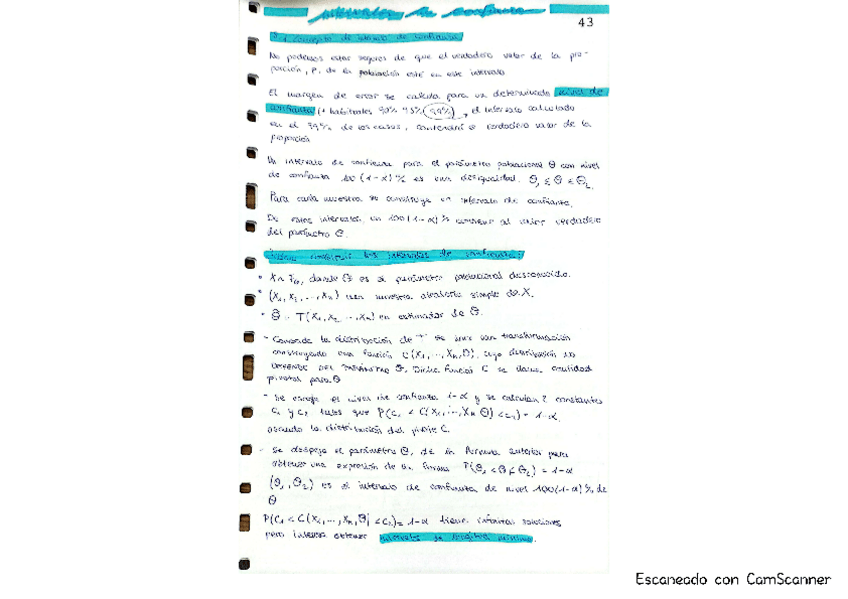 intervalos de confianza
43
1. Concepto de intervalo de confianza
No podemos estar seguros de que el verdadero valor de la pro-
porción, p, de la población esté en este intervalo
El margen de error se calcula para un determinado nivel de
confianza (+ habituales 90% 95% 99%) → el intervalo calculado
en el 99% de los casos, contendrá el verdadero valor de la
proporción
Un intervalo de confianza para el parámetro poblacional θ con nivel
de confianza 100(1-α)% es una desigualdad. θ₁ ≤ θ ≤ θ₂
Para cada muestra se construye un intervalo de confianza.
De estos intervalos un 100(1-α)% contiene al valor verdadero
del parámetro θ.
construir los intervalos de confianza:
• X ~ Fθ, donde θ es el parámetro poblacional desconocido.
• (X₁, X₂, ..., Xn) una muestra aleatoria simple de X.
• θ̂ = T(X₁, X₂, ..., Xn) un estimador de θ.
- Conocida la distribución de T se hace una transformación
construyendo una función C(X₁, ..., Xn, θ), cuya distribución no
DEPENDE DEL PARÁMETRO θ. Dicha función C se llama cantidad
pivotal para θ
- Se escoge el nivel de confianza 1-α y se calculan 2 constantes
C₁ y C₂ tales que P(C₁ < C(X₁, ..., Xn, θ) < C₂) = 1-α,
usando la distribución del pivote C.
- Se despeja el parámetro θ, de la fórmula anterior para
obtener una expresión de la forma P(θ₁ < θ < θ₂) = 1-α
(θ₁, θ₂) es el intervalo de confianza de nivel 100(1-α)% de
θ
P(C₁ < C(X₁, ..., Xn, θ) < C₂) = 1-α tiene infinitas soluciones
pero interesa obtener intervalos de longitud mínima.
Escaneado con CamScanner